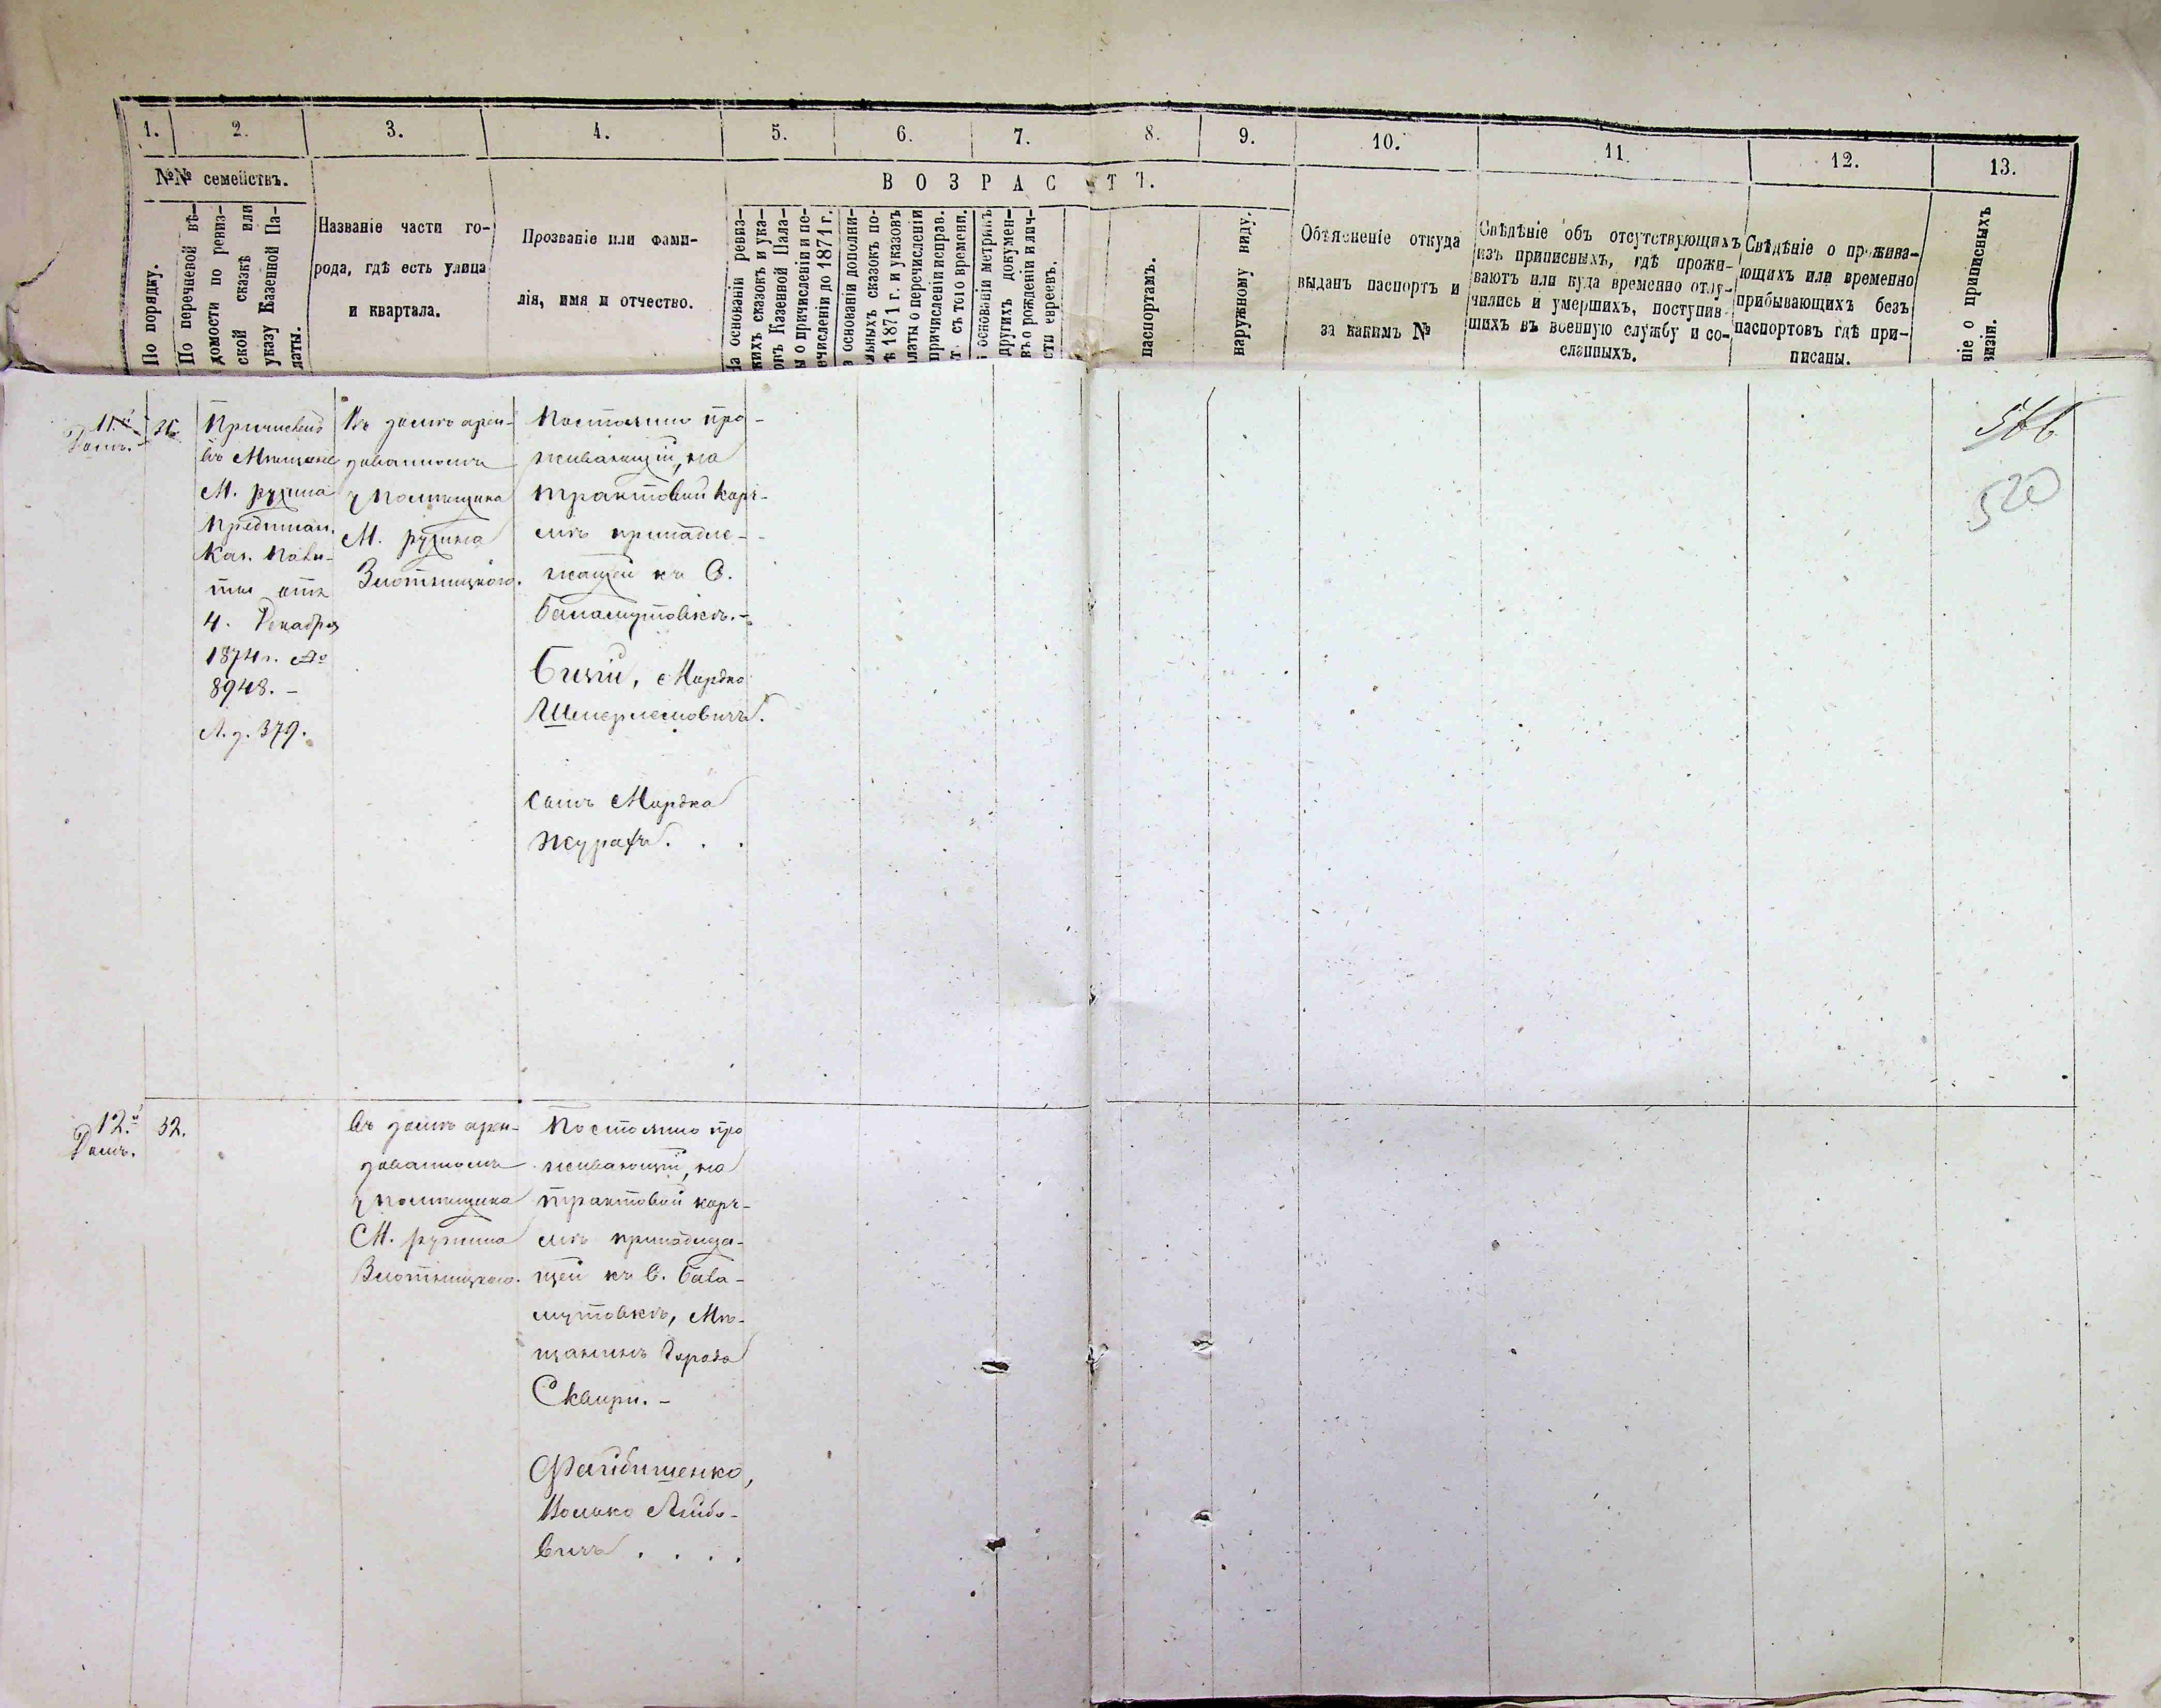 1.
2.
3.
4.
5.
6.
7.
8.
9.
10.
11.
12.
13.
№№ семействъ.
ВОЗРАСТЪ.
По порядку.
По перечневой вѣ-
домости по ревиз-
ской сказкѣ или
указу Казенной Па-
латы.
Названіе части го-
рода, гдѣ есть улица
и квартала.
Прозваніе или фами-
лія, имя и отчество.
На основаніи ревиз-
скихъ сказокъ и ука-
зовъ Казенной Пала-
ты о причисленіи и пе-
речисленіи до 1871 г.
основаніи дополни-
льныхъ сказокъ по-
1871 г. и указовъ
латы о перечисленіи
причисленіи исправ.
съ того времени.
основаніи метрикъ
другихъ докумен-
въ о рожденіи и лич-
сти евреевъ.
паспортамъ.
наружному виду.
Объясненіе откуда
выданъ паспортъ и
за какимъ №
Свѣдѣніе объ отсутствующихъ
изъ приписныхъ, гдѣ прожи-
ваютъ или куда временно отлу-
чились и умершихъ, поступив-
шихъ въ военную службу и со-
сланныхъ.
Свѣдѣніе о прожива-
ющихъ или временно
прибывающихъ безъ
паспортовъ гдѣ при-
писаны.
ніе о приписныхъ
визіи.
11.й
Домъ.
31.
Причисленъ
въ Мѣщане
М. Ружина
Предписан.
Каз. Пала-
ты отъ
4. Декабря
1874 г. №
8948. –
Л. д. 379.
Въ домѣ арен-
дованномъ
у Помѣщика
М. Ружина
Злотницкого.
Постоянно про-
живающій, на
трактовой кор-
смѣ принадле-
жащей къ С.
Баламутовкѣ. –
Бицій, Мордко
Шмерлемовичъ.
Сынъ Мордка
. . .
520
12.й
Домъ.
32.
Въ домѣ арен-
дованномъ
у Помѣщика
М. Ружина
Злотницкого.
Постоянно про
живающій, на
трактовой корч-
мѣ принадлежа-
щей къ С. Бала-
мутовкѣ, Мѣ-
щанинъ Города
Сквири. –
Файбишенко,
Иолико Лейбо-
вичъ . . . .